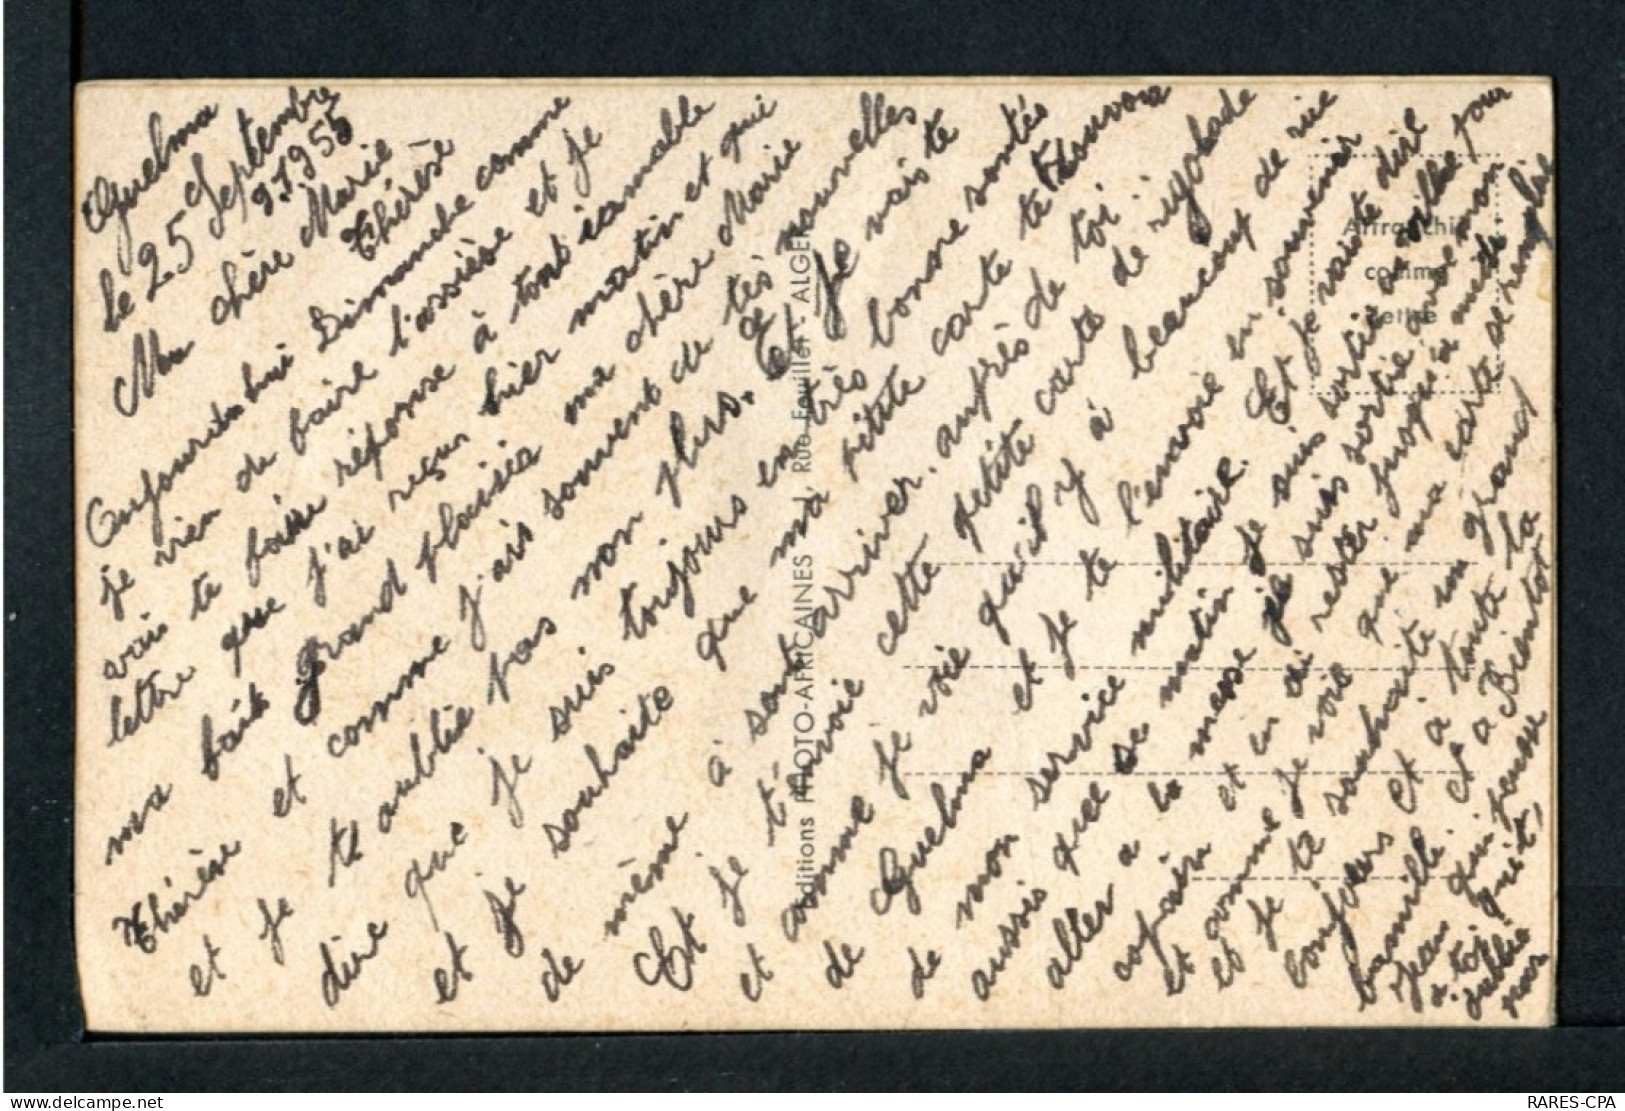 Guelma
le 25 Septembre
1955
Ma chère Marie
Thérèse
Aujourd'hui Dimanche comme
je vien de faire l'assiése et je
vais te faire réponse à tont aimable
lettre que j'ai reçu hier matin et qui
ma fait grand plaisir ma chère Marie
Thérèse et comme j'ais souvent de tes nouvelles
et je te oublie pas non plus. Et je vais te
dire que je suis toujours en très bonne santés
et je souhaite que ma petite carte te trouvera
de même à sont arriver. auprès de toi.
Et je t'envoie cette petite carte de rigolade
et comme je voie qu'il y à beaucoup de rire
de Guelma et je te l'envoie en souvenir
de mon service militaire. Et je vais te dire
aussis que ce matin je suis sortie a ville pour
aller a la messe je suis sortie avec mon
copain et en di rester jusqu'a midi
et comme je voie que ma carte se remplie
et je te souhaite un grand
bonjours et à toute la
famille. et a Bientot
Jean qui pense
a toi
oublie
pas
Editions PHOTO-AFRICAINES 1, Rue Feuillet - ALGER
Affranchir
comme
lettre
RARES-CPA